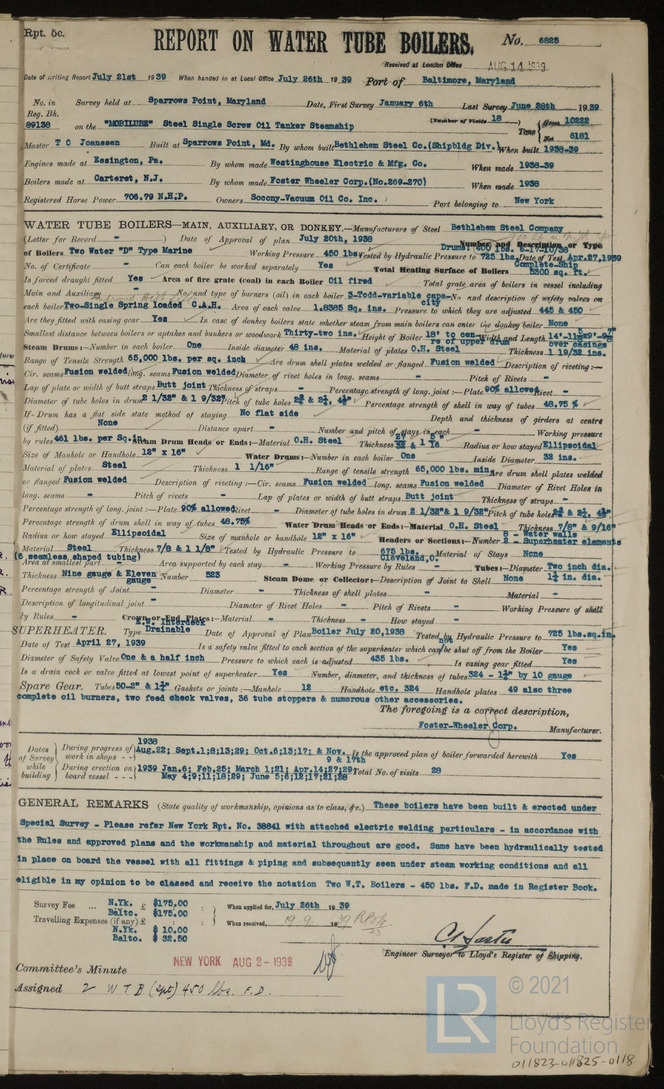 Rpt. 5c.
REPORT ON WATER TUBE BOILERS.
No. 6825
Received at London Office AUG 14 1939
Date of writing Report July 21st 1939 When handed in at Local Office July 26th 1939 Port of Baltimore, Maryland
No. in Reg. Bk. Survey held at Sparrows Point, Maryland Date, First Survey January 6th Last Survey June 28th 1939
89138 on the "MOBILUBE" Steel Single Screw Oil Tanker Steamship (Number of Visits 18) Tons Gross 10222 Net 6181
Master T O Joanssen Built at Sparrows Point, Md. By whom built Bethlehem Steel Co.(Shipbldg Div.) When built 1938-39
Engines made at Essington, Pa. By whom made Westinghouse Electric & Mfg. Co. When made 1938-39
Boilers made at Carteret, N.J. By whom made Foster Wheeler Corp.(No.269-270) When made 1938
Registered Horse Power 706.79 N.H.P. Owners Socony-Vacuum Oil Co. Inc. Port belonging to New York
WATER TUBE BOILERS—MAIN, AUXILIARY, OR DONKEY.—Manufacturers of Steel Bethlehem Steel Company
(Letter for Record - ) Date of Approval of plan July 20th, 1938 Number and Description or Type
of Boilers Two Water "D" Type Marine Working Pressure 450 lbs Tested by Hydraulic Pressure to 725 lbs. Date of Test Apr.27,1939
No. of Certificate - Can each boiler be worked separately Yes Total Heating Surface of Boilers 5300 sq. ft.
Is forced draught fitted Yes Area of fire grate (coal) in each Boiler Oil fired Total grate area of boilers in vessel including
Main and Auxiliary No. and type of burners (oil) in each boiler 3-Todd-variable capacity No. and description of safety valves on
each boiler Two-Single Spring loaded C.A.H. Area of each valve 1.8385 Sq. ins. Pressure to which they are adjusted 445 & 450
Are they fitted with easing gear Yes In case of donkey boilers state whether steam from main boilers can enter the donkey boiler None
Smallest distance between boilers or uptakes and bunkers or woodwork Thirty-two ins. Height of Boiler 18' to centre of upper drum Width and Length over casings
Steam Drums:—Number in each boiler One Inside diameter 48 ins. Material of plates O.H. Steel Thickness 1 19/32 ins.
Range of Tensile Strength 65,000 lbs. per sq. inch Are drum shell plates welded or flanged Fusion welded Description of riveting:—
Cir. seams Fusion welded long. seams Fusion welded Diameter of rivet holes in long. seams - Pitch of Rivets -
Lap of plate or width of butt straps Butt joint Thickness of straps - Percentage strength of long. joint:—Plate 90% allowed Rivet -
Diameter of tube holes in drum 2 1/32" & 1 9/32" Pitch of tube holes Percentage strength of shell in way of tubes 48.75 %
If Drum has a flat side state method of staying No flat side Depth and thickness of girders at centre
(if fitted) None Distance apart - Number and pitch of stays in each - Working pressure
by rules 461 lbs. per Sq.in. Steam Drum Heads or Ends:—Material O.H. Steel Thickness Radius or how stayed Ellipsoidal
Size of Manhole or Handhole 12" x 16" Water Drums:—Number in each boiler One Inside Diameter 32 ins.
Material of plates Steel Thickness 1 1/16" Range of tensile strength 65,000 lbs. min Are drum shell plates welded
or flanged Fusion welded Description of riveting:—Cir. seams Fusion welded long. seams Fusion welded Diameter of Rivet Holes in
long. seams - Pitch of rivets - Lap of plates or width of butt straps Butt joint Thickness of straps -
Percentage strength of long. joint:—Plate 90% allowed Rivet - Diameter of tube holes in drum 2 1/32" & 1 9/32" Pitch of tube holes
Percentage strength of drum shell in way of tubes 48.75% Water Drum Heads or Ends:—Material O.H. Steel Thickness 7/8" & 9/16"
Radius or how stayed Ellipsoidal Size of manhole or handhole 12" x 16" Headers or Sections:—Number 5 - Water walls 2 - Superheater elements
Material Steel Thickness 7/8 & 1 1/8" Tested by Hydraulic Pressure to 675 lbs. Cleveland, O. Material of Stays None
(& seamless shaped tubing)
Area at smallest part - Area supported by each stay - Working Pressure by Rules - Tubes:—Diameter Two inch dia. 1¼ in. dia.
Thickness Nine gauge & Eleven gauge Number 523 Steam Dome or Collector:—Description of Joint to Shell None
Percentage strength of Joint - Diameter - Thickness of shell plates - Material -
Description of longitudinal joint - Diameter of Rivet Holes - Pitch of Rivets - Working Pressure of shell
by Rules - Crown or End Plates:—Material - Thickness - How stayed -
SUPERHEATER. Type Interdeck Drainable Date of Approval of Plan Boiler July 20,1938 Tested by Hydraulic Pressure to 725 lbs.sq.in.
Date of Test April 27, 1939 Is a safety valve fitted to each section of the superheater which can not be shut off from the Boiler Yes
Diameter of Safety Valve One & a half inch Pressure to which each is adjusted 435 lbs. Is easing gear fitted Yes
Is a drain cock or valve fitted at lowest point of superheater Yes Number, diameter, and thickness of tubes 324 - 1¼" by 10 gauge
Spare Gear. Tubes 50-2" & 1¼" Gaskets or joints:—Manhole 12 Handhole etc. 324 Handhole plates 49 also three
complete oil burners, two feed check valves, 36 tube stoppers & numerous other accessories.
The foregoing is a correct description,
Foster-Wheeler Corp. Manufacturer.
Dates of Survey while building
During progress of work in shops - - 1938 Aug.22; Sept.1;8;13;29; Oct.6;13;17; & Nov. 9 & 17th Is the approved plan of boiler forwarded herewith Yes
During erection on board vessel - - - 1939 Jan.6; Feb.25; March 1;21; Apr.14;27;29; May 4;9;11;18;29; June 5;6;12;17;21;28 Total No. of visits 28
GENERAL REMARKS (State quality of workmanship, opinions as to class, &c.) These boilers have been built & erected under
Special Survey - Please refer New York Rpt. No. 38841 with attached electric welding particulars - in accordance with
the Rules and approved plans and the workmanship and material throughout are good. Same have been hydraulically tested
in place on board the vessel with all fittings & piping and subsequently seen under steam working conditions and all
eligible in my opinion to be classed and receive the notation Two W.T. Boilers - 450 lbs. F.D. made in Register Book.
Survey Fee ... N.Yk. £ $175.00 When applied for, July 26th 1939
Balto. $175.00
Travelling Expenses (if any) £ When received, 19.9. 1939
N.Yk. $ 10.00
Balto. $ 32.50
Engineer Surveyor to Lloyd's Register of Shipping.
Committee's Minute NEW YORK AUG 2-1939
Assigned 2 WTB (spt) 450 lbs. F.D.
© 2021
LR
Lloyd's Register
Foundation
011823-011825-0118